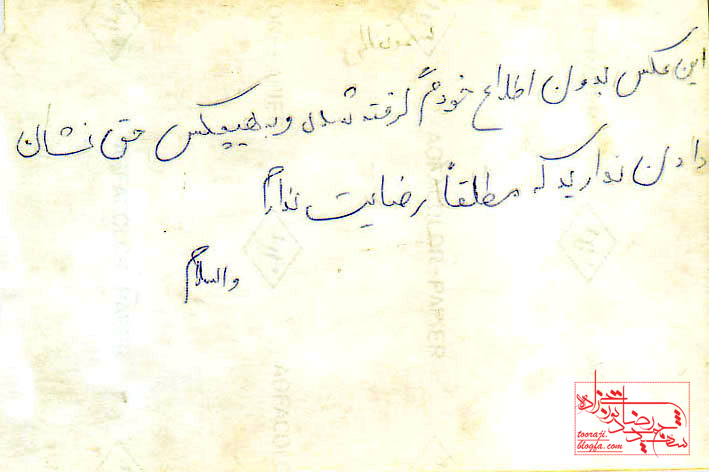 این عکس بدون اطلاع خودم گرفته شده و به هیچکس حق نشان
دادن ندارید که مطلقاً رضایت ندارم
والسلام
tooraji.
blogfa.com